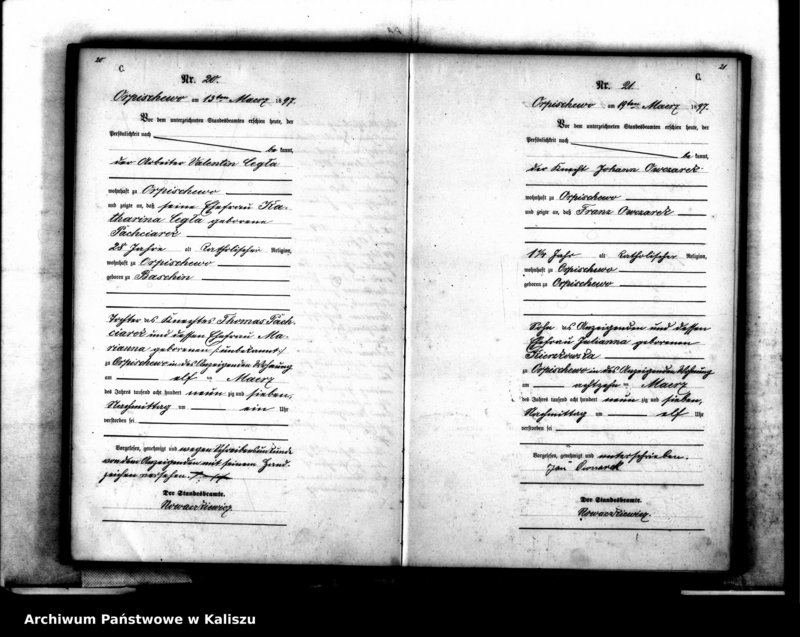 20
C.
Nr. 20.
Orpischewo am 13ten Maerz 1897.
Vor dem unterzeichneten Standesbeamten erschien heute, der
Persönlichkeit nach
be kannt,
der Arbeiter Valentin Cegła
wohnhaft zu Orpischewo
und zeigte an, daß seine Ehefrau Ka-
tharina Cegła geborene
Pachciarek
28 Jahre alt Katholischer Religion,
wohnhaft zu Orpischewo
geboren zu Baschin
Tochter des Knechtes Thomas Pach-
ciarek und dessen Ehefrau Ma-
rianna geborenen (unbekannt)
zu Orpischewo in des Anzeigenden Wohnung
am elf ten Maerz
des Jahres tausend acht hundert neun zig und sieben,
Nachmittag um ein Uhr
verstorben sei
Vorgelesen, genehmigt und wegen Schreibensunkunde
von dem Anzeigenden mit seinem Hand-
zeichen versehen +++
Der Standesbeamte.
Nowaczkiewicz
21
C.
Nr. 21.
Orpischewo am 19ten Maerz 1897.
Vor dem unterzeichneten Standesbeamten erschien heute, der
Persönlichkeit nach
be kannt,
der Knecht Johann Owczarek
wohnhaft zu Orpischewo
und zeigte an, daß Franz Owczarek
1½ Jahr alt Katholischer Religion,
wohnhaft zu Orpischewo
geboren zu Orpischewo
Sohn des Anzeigenden und dessen
Ehefrau Julianna geborenen
zu Orpischewo in des Anzeigenden Wohnung
am achtzehn ten Maerz
des Jahres tausend acht hundert neun zig und sieben,
Nachmittag um elf Uhr
verstorben sei
Vorgelesen, genehmigt und unterschrieben.
Jan
Der Standesbeamte.
Nowaczkiewicz.
Archiwum Państwowe w Kaliszu